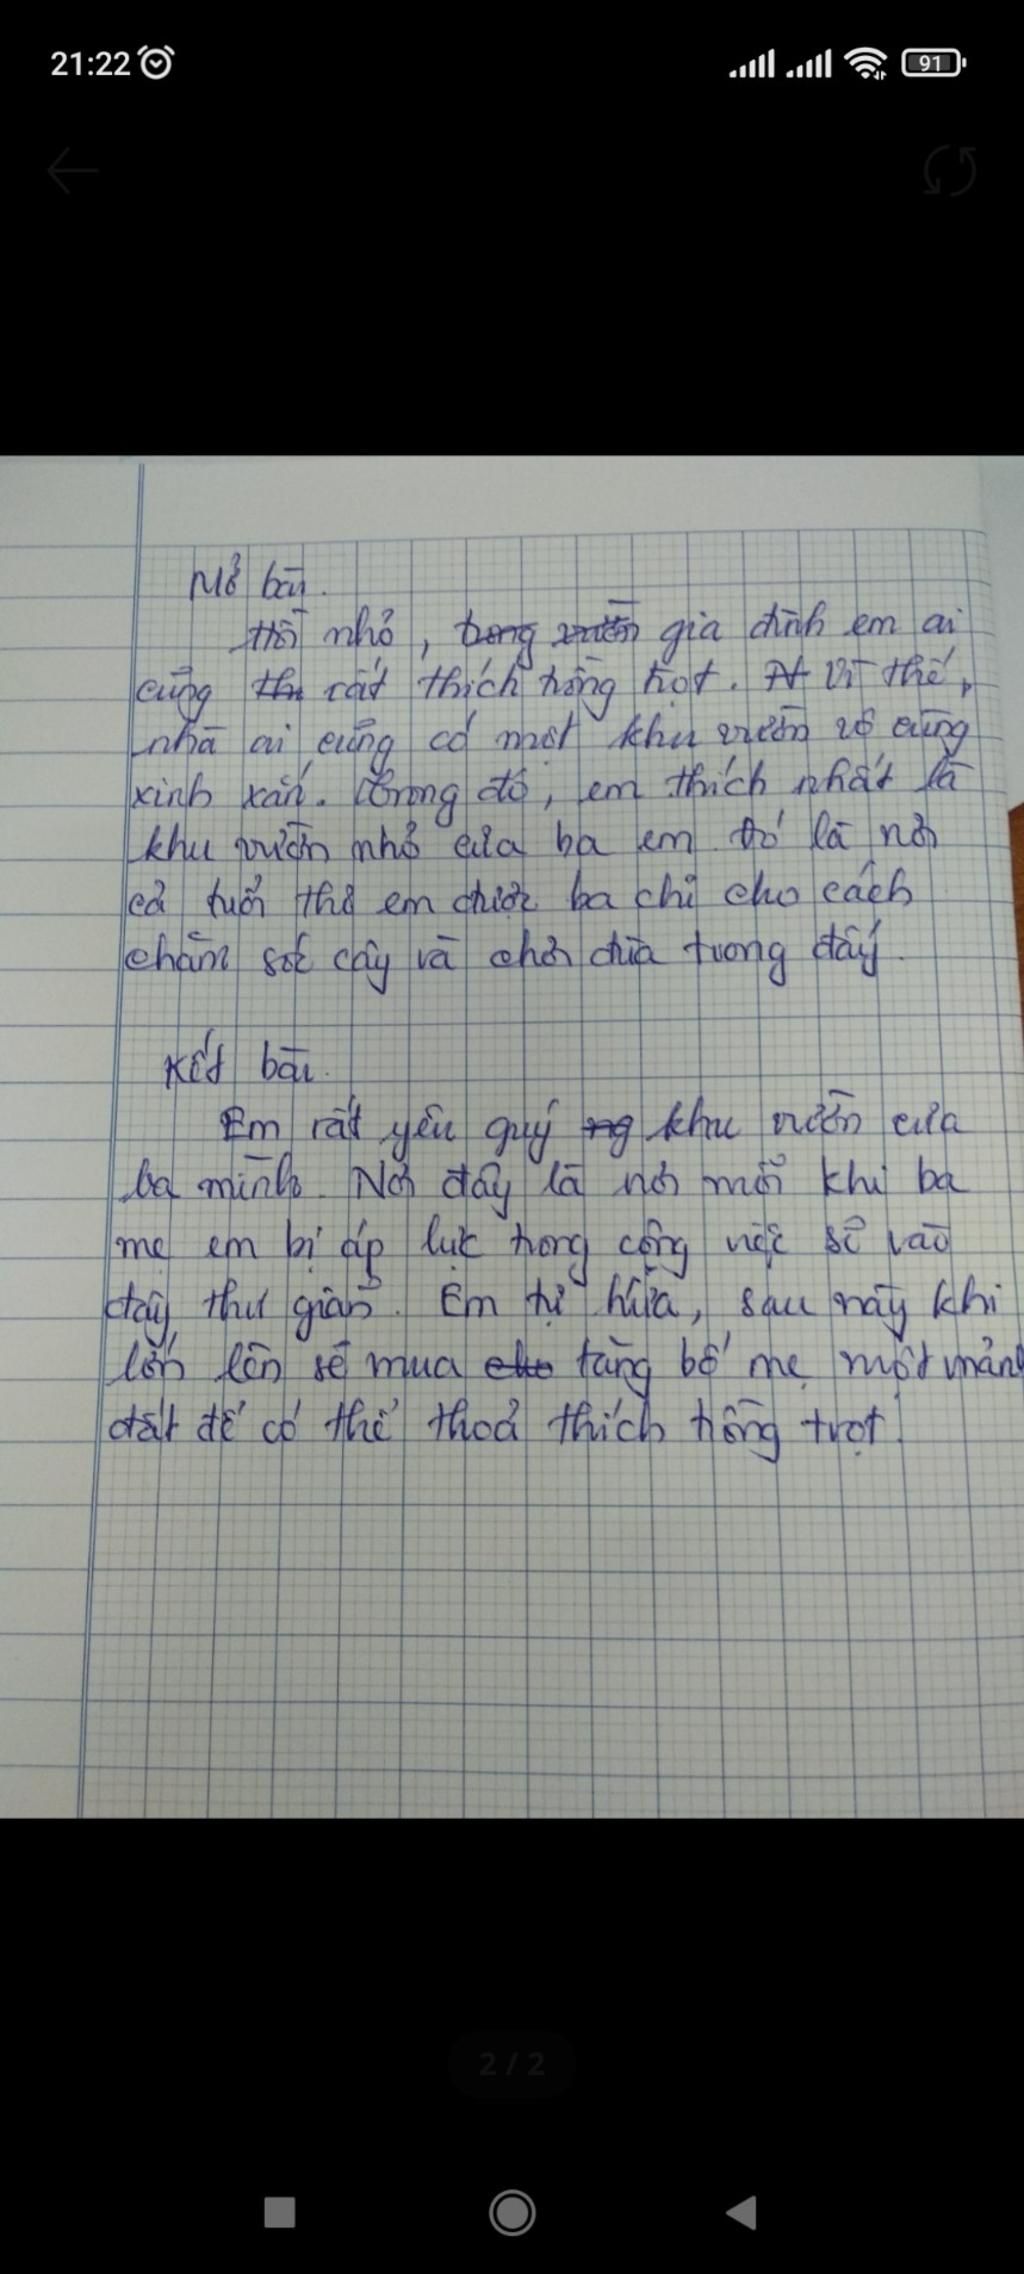 21:22
91
Mở bài.
Hồi nhỏ, trong vườn gia đình em ai
cũng th rất thích trồng trọt. Vì thế,
nhà ai cũng có một khu vườn vô cùng
xinh xắn. Trong đó, em thích nhất là
khu vườn nhỏ của ba em. Đó là nơi
cả tuổi thơ em được ba chỉ cho cách
chăm sóc cây và chơi đùa trong đấy.
Kết bài.
Em rất yêu quý ng khu vườn của
ba mình. Nơi đây là nơi mỗi khi ba
mẹ em bị áp lực trong công việc sẽ vào
đây thư giãn. Em tự hứa, sau này khi
lớn lên sẽ mua cho tặng bố mẹ một mảnh
đất để có thể thoả thích trồng trọt.
2 / 2